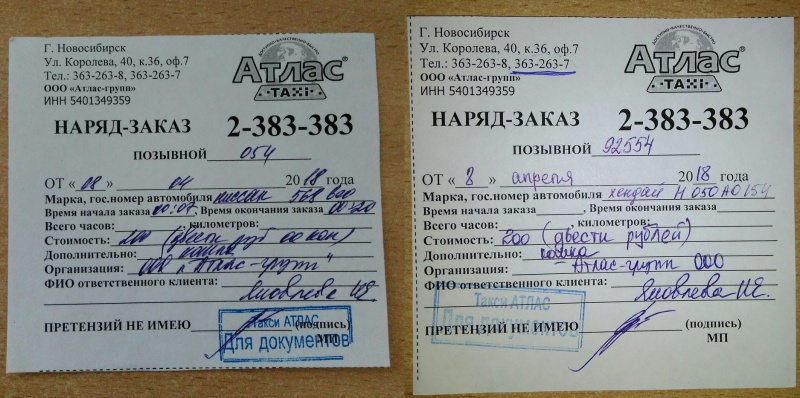 Г. Новосибирск
Ул. Королева, 40, к.36, оф.7
Тел.: 363-263-8, 363-263-7
ООО «Атлас-групп»
ИНН 5401349359
ДОСТУПНО-КАЧЕСТВЕННО-БЫСТРО
Атлас
TAXI
НАРЯД-ЗАКАЗ 2-383-383
ПОЗЫВНОЙ 054
ОТ « 08 » 04 2018 года
Марка, гос.номер автомобиля ниссан 568
Время начала заказа 00:07, Время окончания заказа 00-20
Всего часов: , километров:
Стоимость: 200 (двести руб 00 коп)
Дополнительно: кошка
Организация: ООО "Атлас-групп"
ФИО ответственного клиента:
Яковлева
ПРЕТЕНЗИЙ НЕ ИМЕЮ (подпись)
МП
Такси АТЛАС
Для документов
Г. Новосибирск
Ул. Королева, 40, к.36, оф.7
Тел.: 363-263-8, 363-263-7
ООО «Атлас-групп»
ИНН 5401349359
ДОСТУПНО-КАЧЕСТВЕННО-БЫСТРО
Атлас
TAXI
НАРЯД-ЗАКАЗ 2-383-383
ПОЗЫВНОЙ 92554
ОТ « 8 » апреля 2018 года
Марка, гос.номер автомобиля хендай Н 050 АО 154
Время начала заказа , Время окончания заказа
Всего часов: , километров:
Стоимость: 200 (двести рублей)
Дополнительно: кошка
Организация: Атлас-групп ООО
ФИО ответственного клиента:
Яковлева Н.Е.
ПРЕТЕНЗИЙ НЕ ИМЕЮ (подпись)
МП
Такси АТЛАС
Для документов